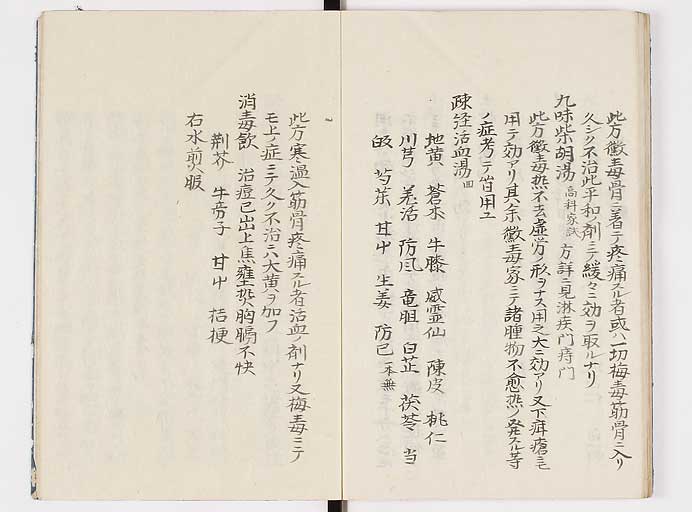 此方黴毒骨ニ着テ疼痛スル者或ハ一切梅毒筋骨ニ入リ
久シク不治此平和ノ剤ニテ緩々ニ効ヲ取ルナリ
九味柴胡湯 高科家試 方詳ニ見淋疾門痔門
此方黴毒熱不去虚労ノ形ヲナス用之大ニ効アリ又下疳瘡ニモ
用テ効アリ其余黴毒家ニテ諸腫物不愈熱ノ発スル等
ノ症考ヘテ皆用ユ
疎経活血湯 回
地黄 蒼朮 牛膝 威霊仙 陳皮 桃仁
川芎 羌活 防風 竜胆 白芷 茯苓 当
皈 芍薬 甘草 生姜 防已 一本無
此方寒湿入筋骨疼痛スル者活血ノ剤ナリ又梅毒ニテ
モ上ノ症ニテ久ク不治ニハ大黄ヲ加フ
消毒飲 治痘已出上焦壅熱胸膈不快
荊芥 牛旁子 甘草 桔梗
右水煎服